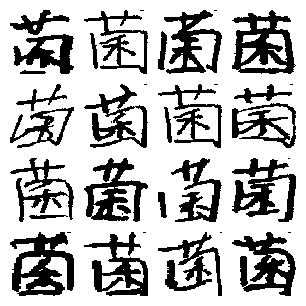 菌菌菌菌
菌菌菌菌
菌菌菌菌
菌菌菌菌